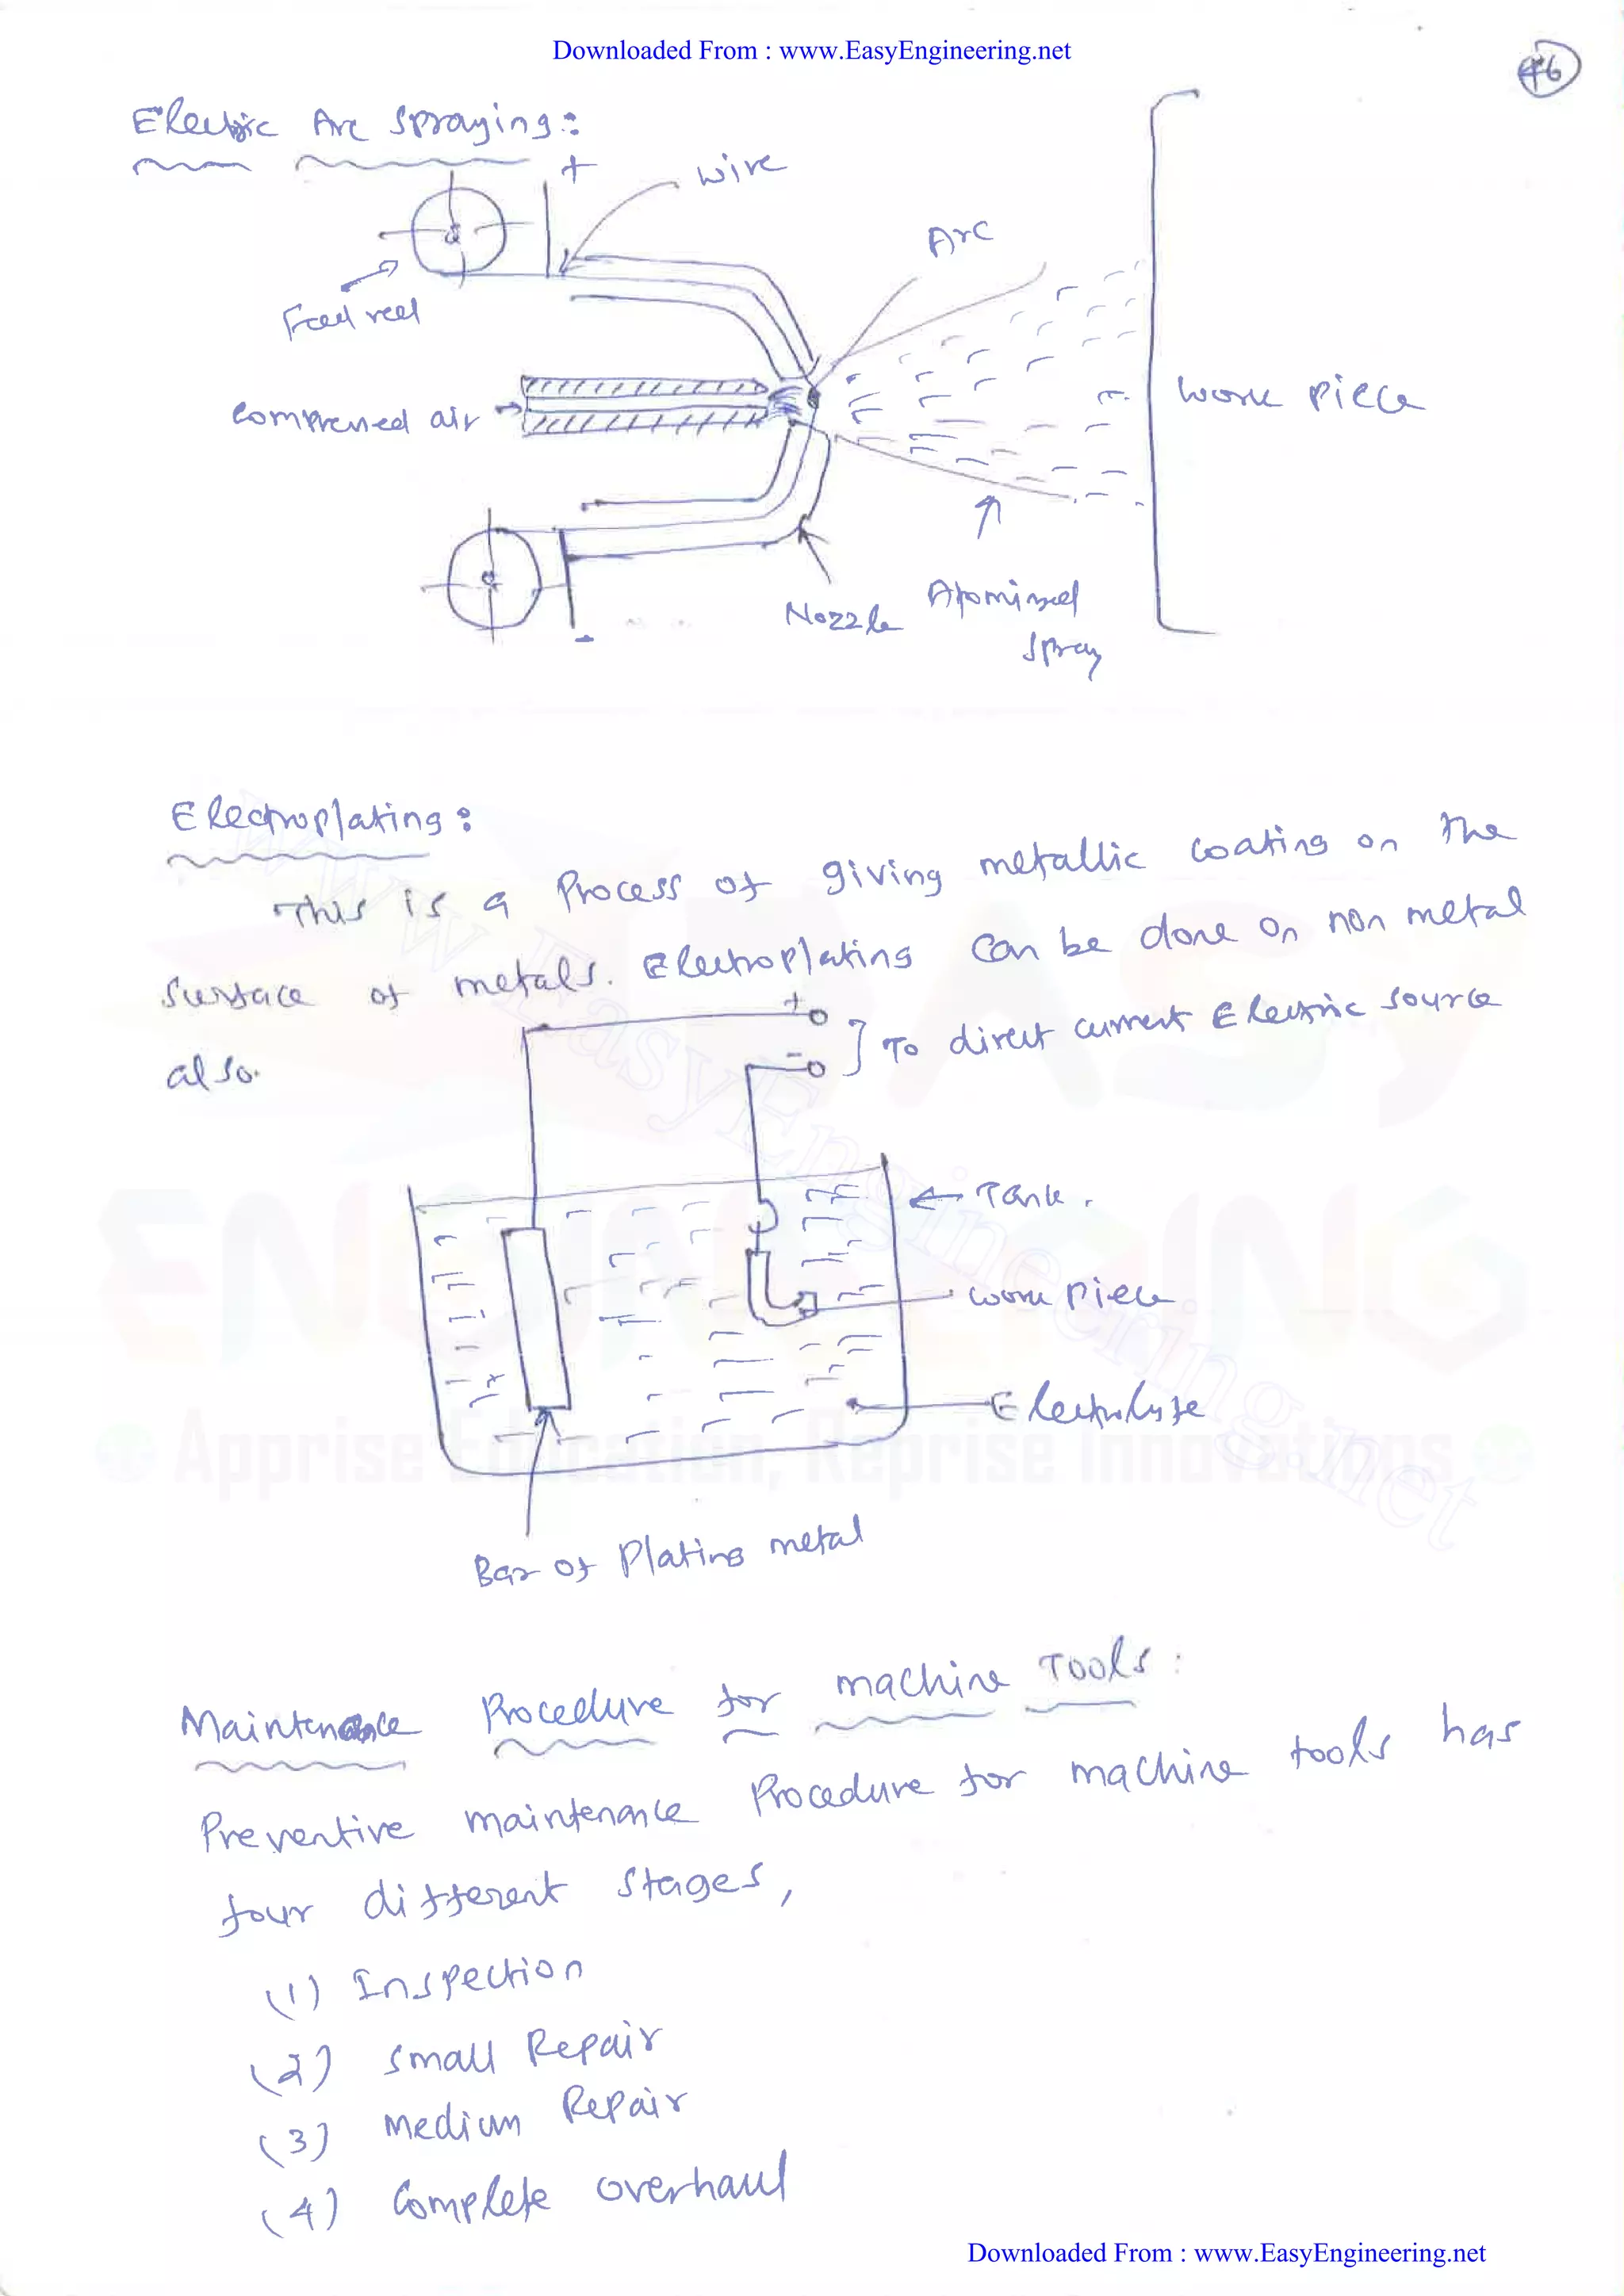 Downloaded From : www.EasyEngineering.net
46
Electric Arc Spraying :
+
wire
Arc
Feed reel
Compressed air
work piece
Nozzle
Atomized
Spray
-
Electroplating :
This is a Process of giving metallic coating on the
surface of metals. Electroplating can be done on non metal
also.
+
-
To direct current Electric source
Tank.
work piece
Electrolyte
Bar of Plating metal
www.EasyEngineering.net
EASY
ENGINEERING
Apprise Education, Reprise Innovations
Maintenance Procedure for machine Tools :
Preventive maintenance Procedure for machine tools has
four different stages,
(1) Inspection
(2) small Repair
(3) Medium Repair
(4) Complete overhaul
Downloaded From : www.EasyEngineering.net